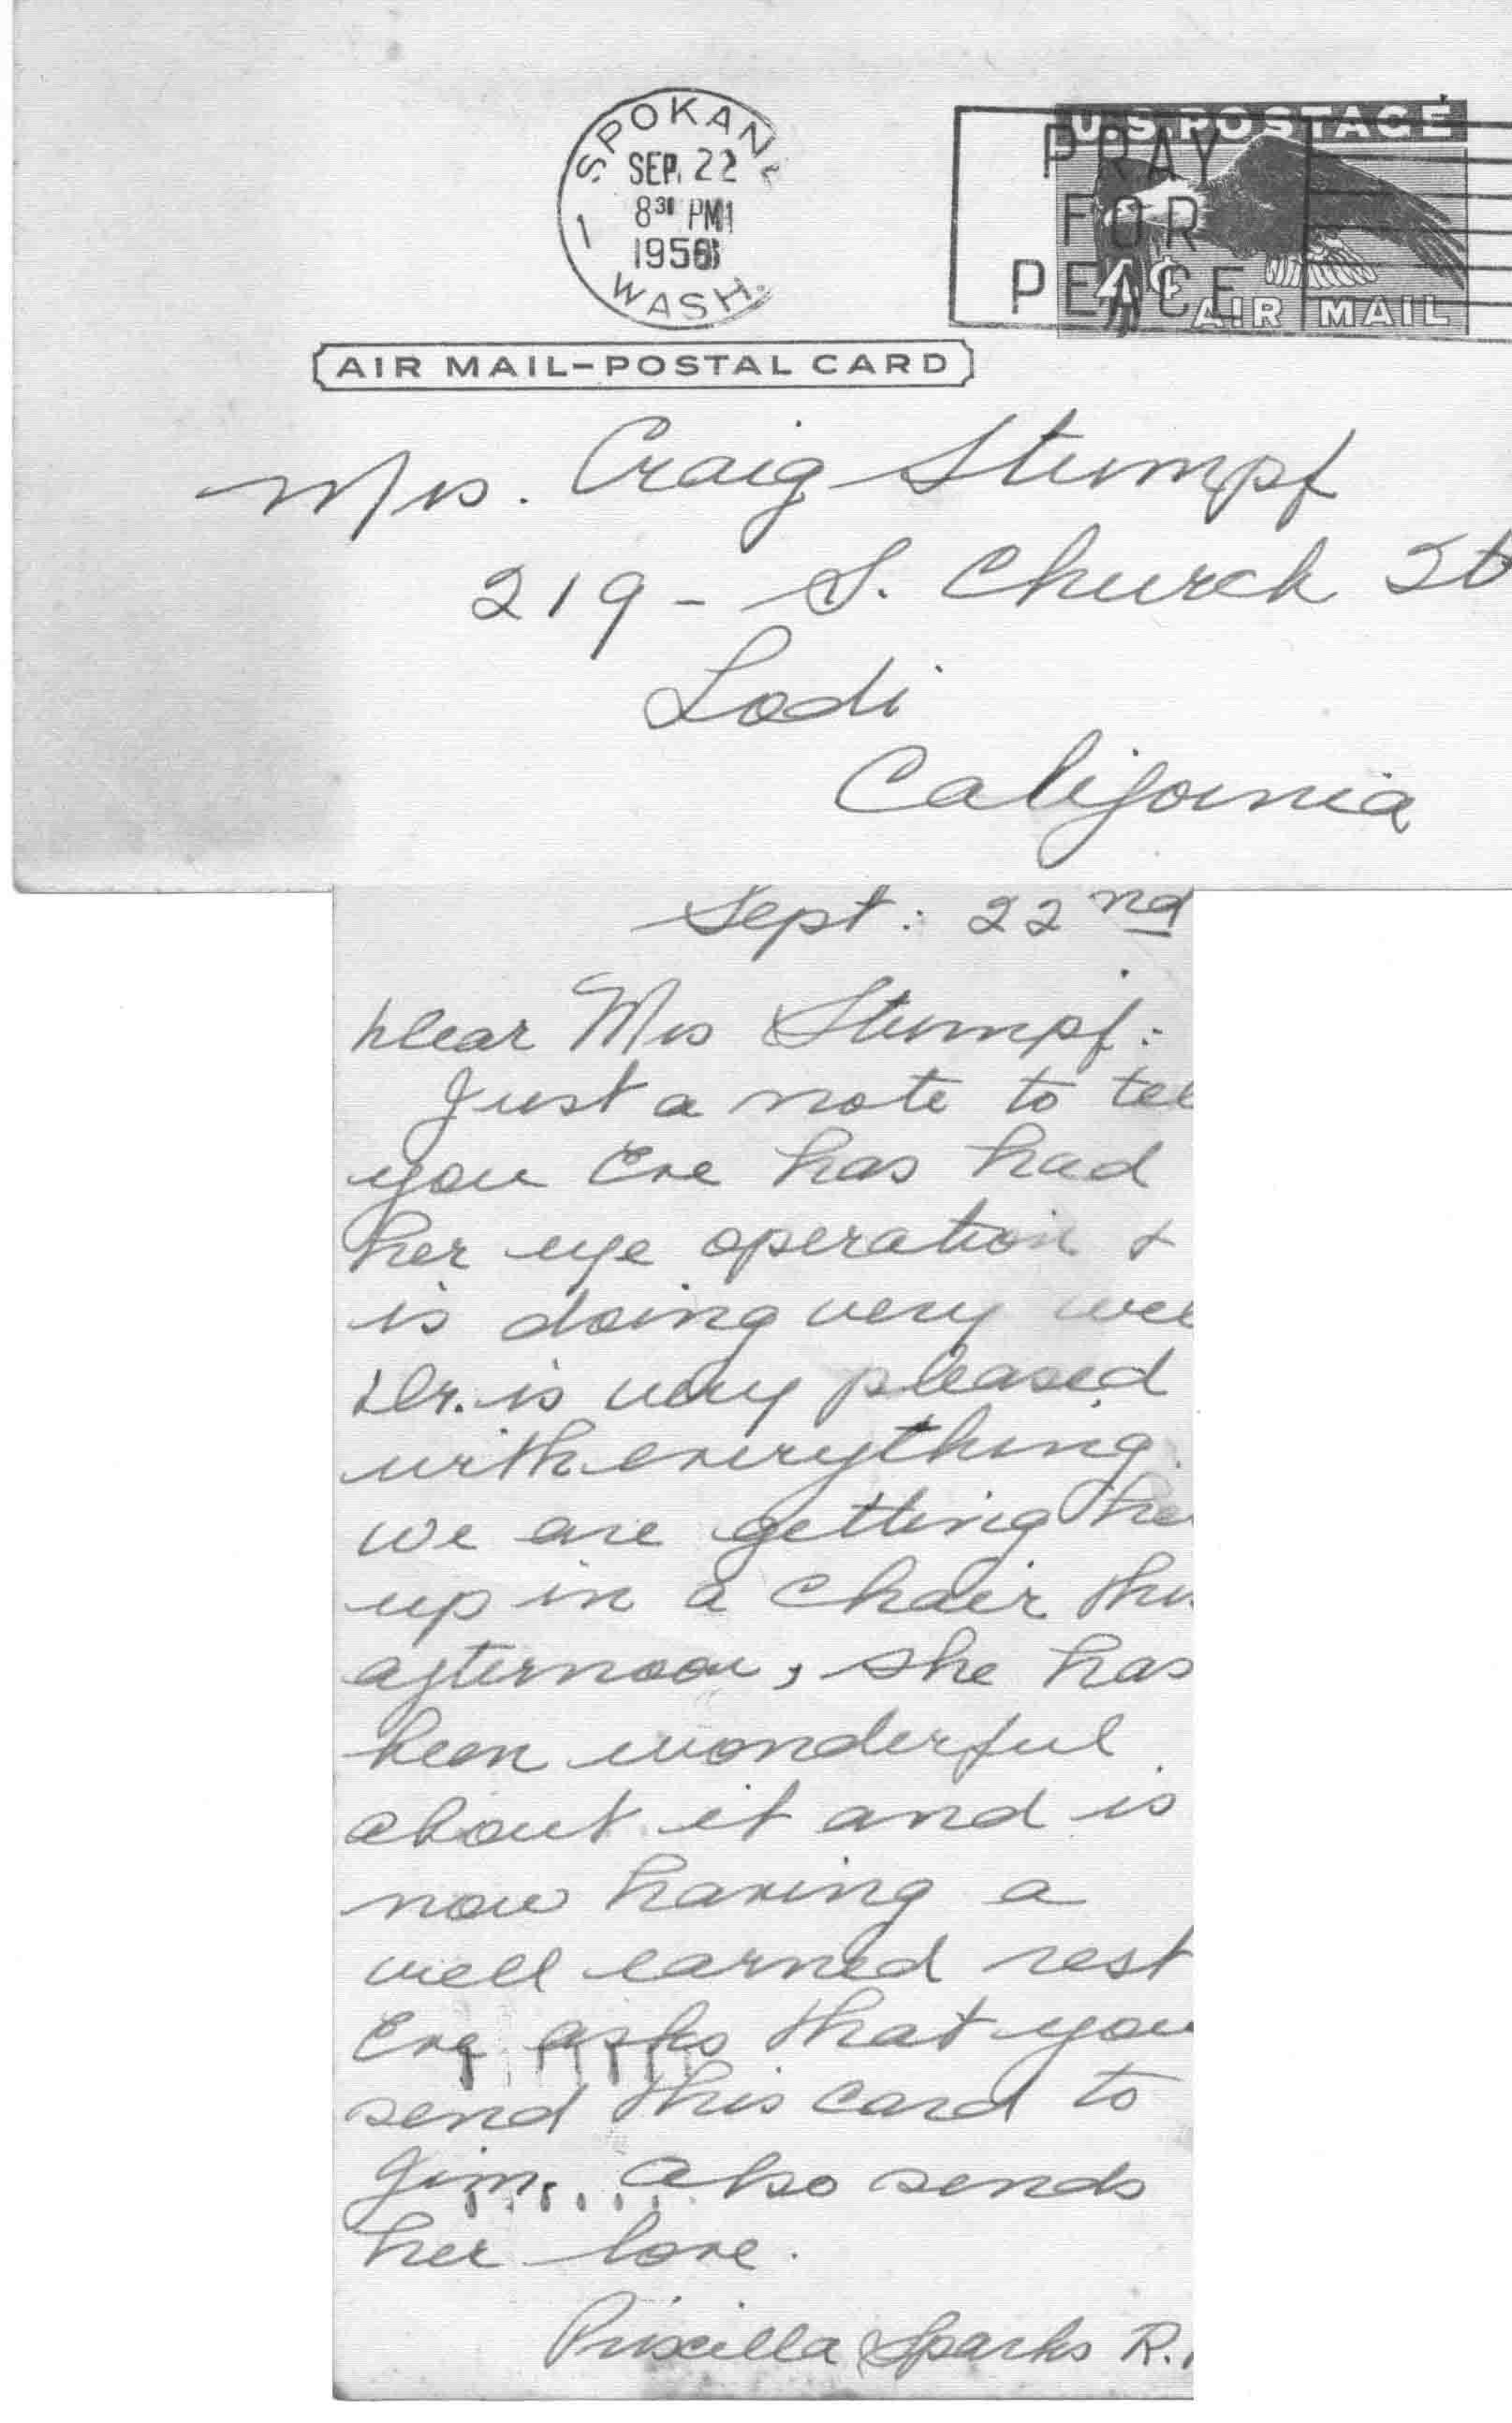 SPOKANE
SEP. 22
8 30 PM
1
WASH.
U.S. POSTAGE
PRAY
FOR
PEACE
4¢ AIR MAIL
AIR MAIL-POSTAL CARD
Mrs. Craig Stumpf
219 - S. Church St
Lodi
California
Sept: 22nd
Dear Mrs Stumpf:
Just a note to tel
you Eve has had
her eye operation &
is doing very wel
Dr. is very pleased
with everything.
we are getting he
up in a chair thi
afternoon, she has
been wonderful
about it and is
now having a
well earned rest
Eve asks that you
send this card to
Jim. Also sends
her love.
Priscilla Sparks R.